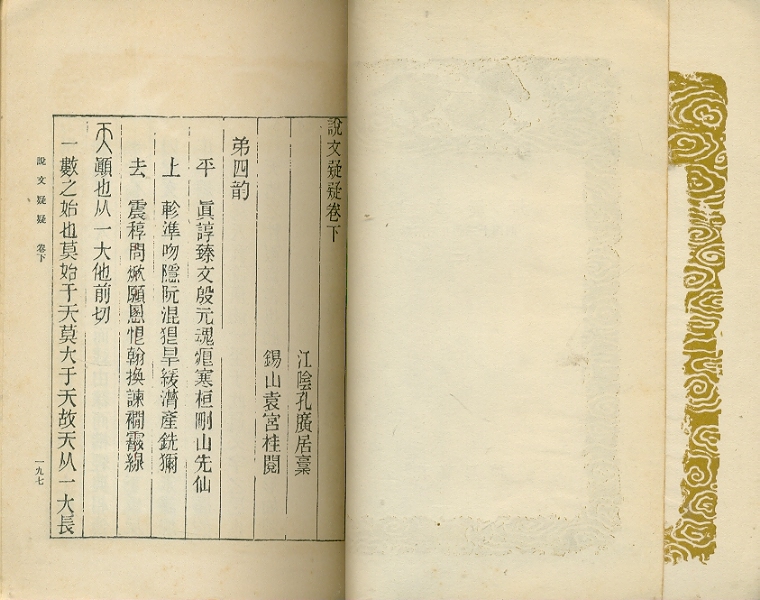 說文疑疑卷下
江陰孔廣居稾
錫山袁宮桂閱
弟四韵
平 眞諄臻文殷元魂痕寒桓刪山先仙
上 軫準吻隱阮混很旱緩潸產銑獮
去 震稕問焮願慁恨翰換諫襉霰線
顚也从一大他前切
一數之始也莫始于天莫大于天故天从一大長
說文疑疑 卷下
一九七